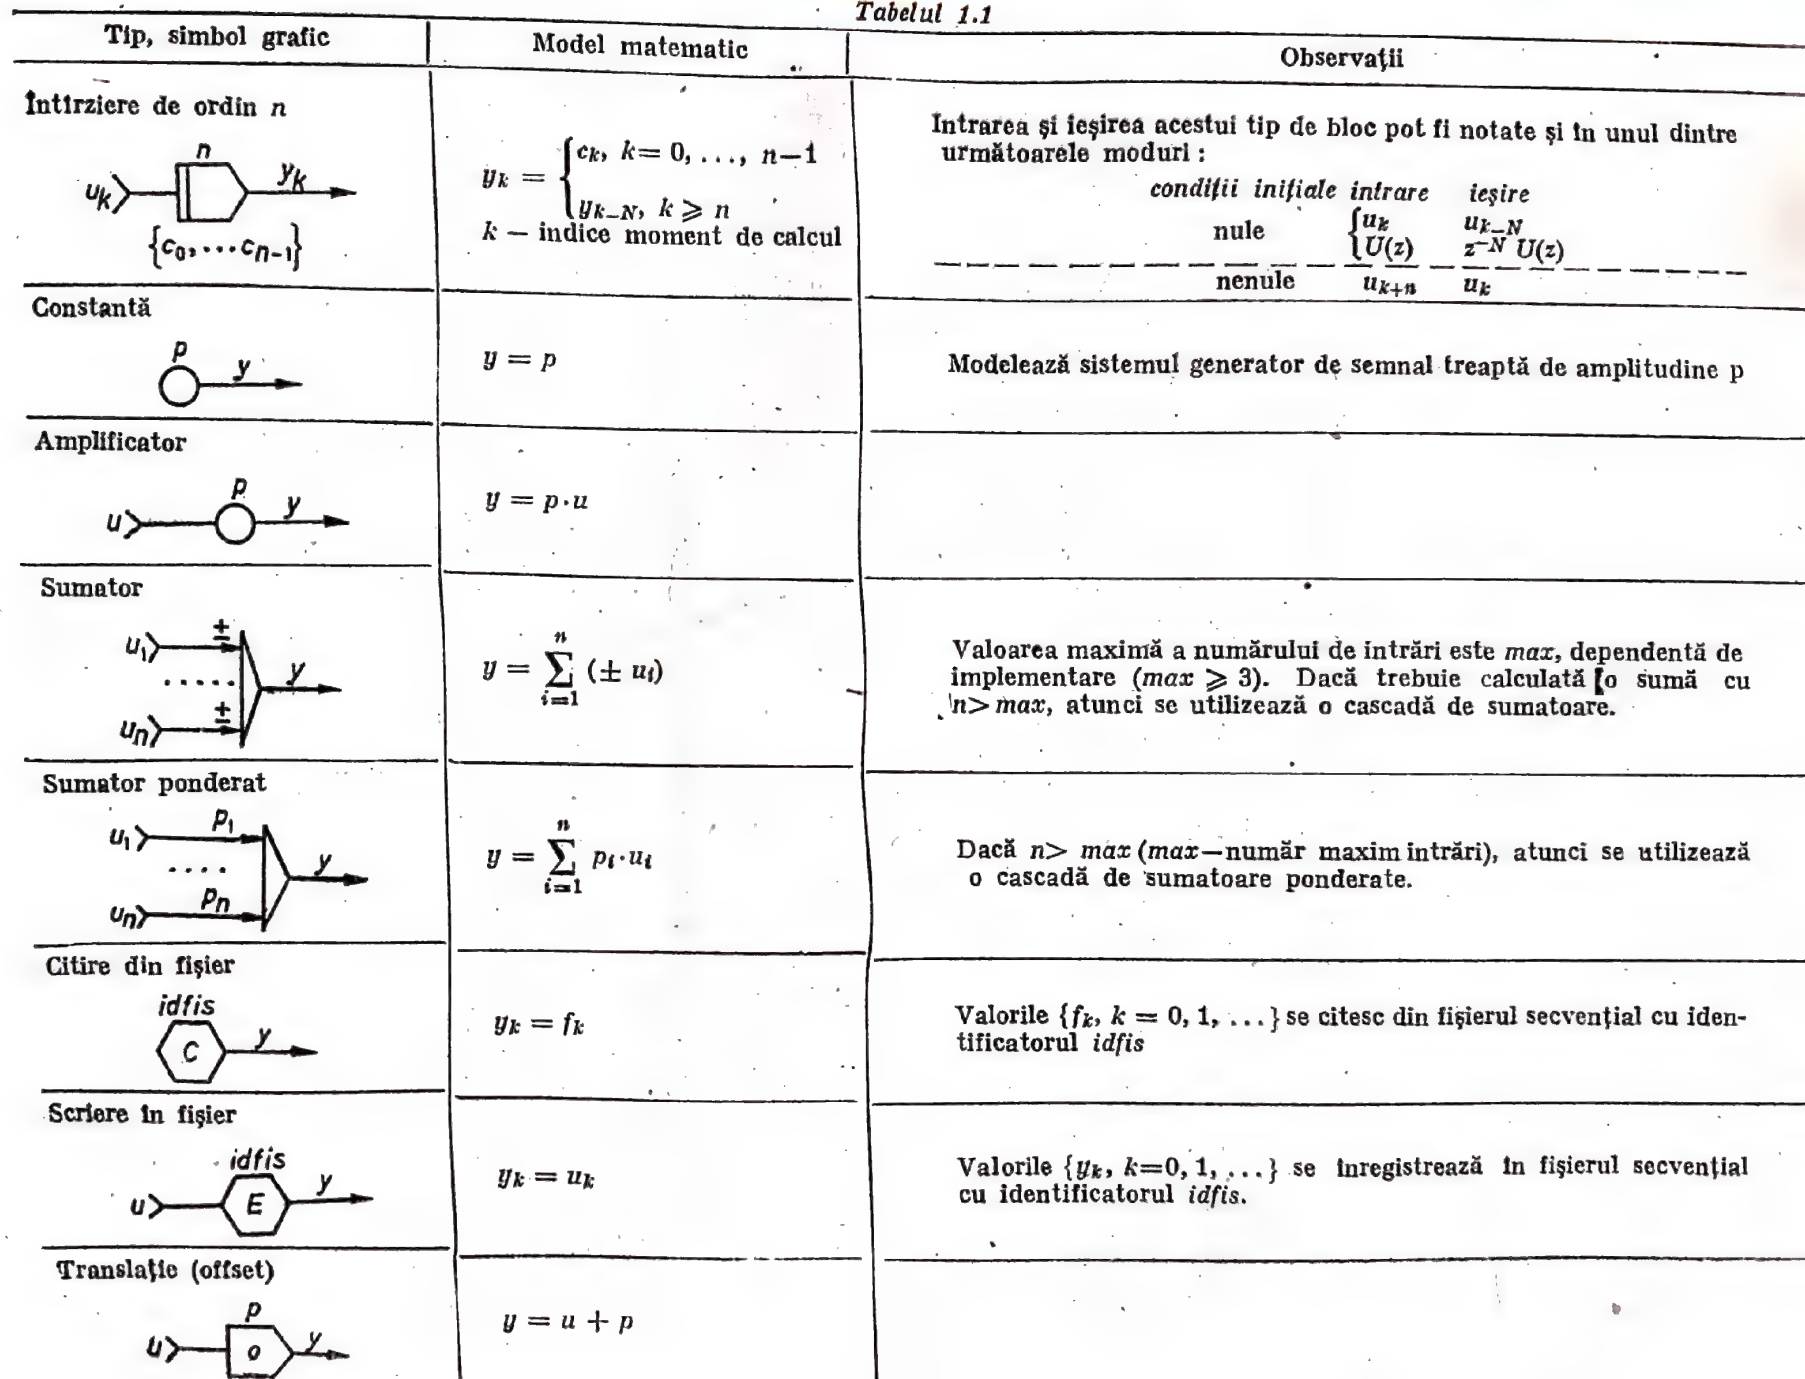 Tabelul 1.1
Tip, simbol grafic
Model matematic
Observații
Întîrziere de ordin n
n
u_k
y_k
{c_0, ... c_{n-1}}
y_k = { c_k, k = 0, ..., n−1
y_{k−N}, k ⩾ n
k — indice moment de calcul
Intrarea și ieșirea acestui tip de bloc pot fi notate și în unul dintre
următoarele moduri :
condiții inițiale intrare ieșire
nule { u_k u_{k−N}
U(z) z^{−N} U(z)
nenule u_{k+n} u_k
Constantă
p
y
y = p
Modelează sistemul generator de semnal treaptă de amplitudine p
Amplificator
p
u
y
y = p·u
Sumator
u_1
±
.....
y
u_n
±
y = ∑_{i=1}^{n} (± u_i)
Valoarea maximă a numărului de intrări este max, dependentă de
implementare (max ⩾ 3). Dacă trebuie calculată o sumă cu
n> max, atunci se utilizează o cascadă de sumatoare.
Sumator ponderat
u_1
p_1
....
y
u_n
p_n
y = ∑_{i=1}^{n} p_i·u_i
Dacă n> max (max—număr maxim intrări), atunci se utilizează
o cascadă de sumatoare ponderate.
Citire din fișier
idfis
C
y
y_k = f_k
Valorile {f_k, k = 0, 1, ...} se citesc din fișierul secvențial cu iden-
tificatorul idfis
Scriere în fișier
idfis
u
E
y
y_k = u_k
Valorile {y_k, k=0, 1, ...} se înregistrează în fișierul secvențial
cu identificatorul idfis.
Translație (offset)
p
u
o
y
y = u + p